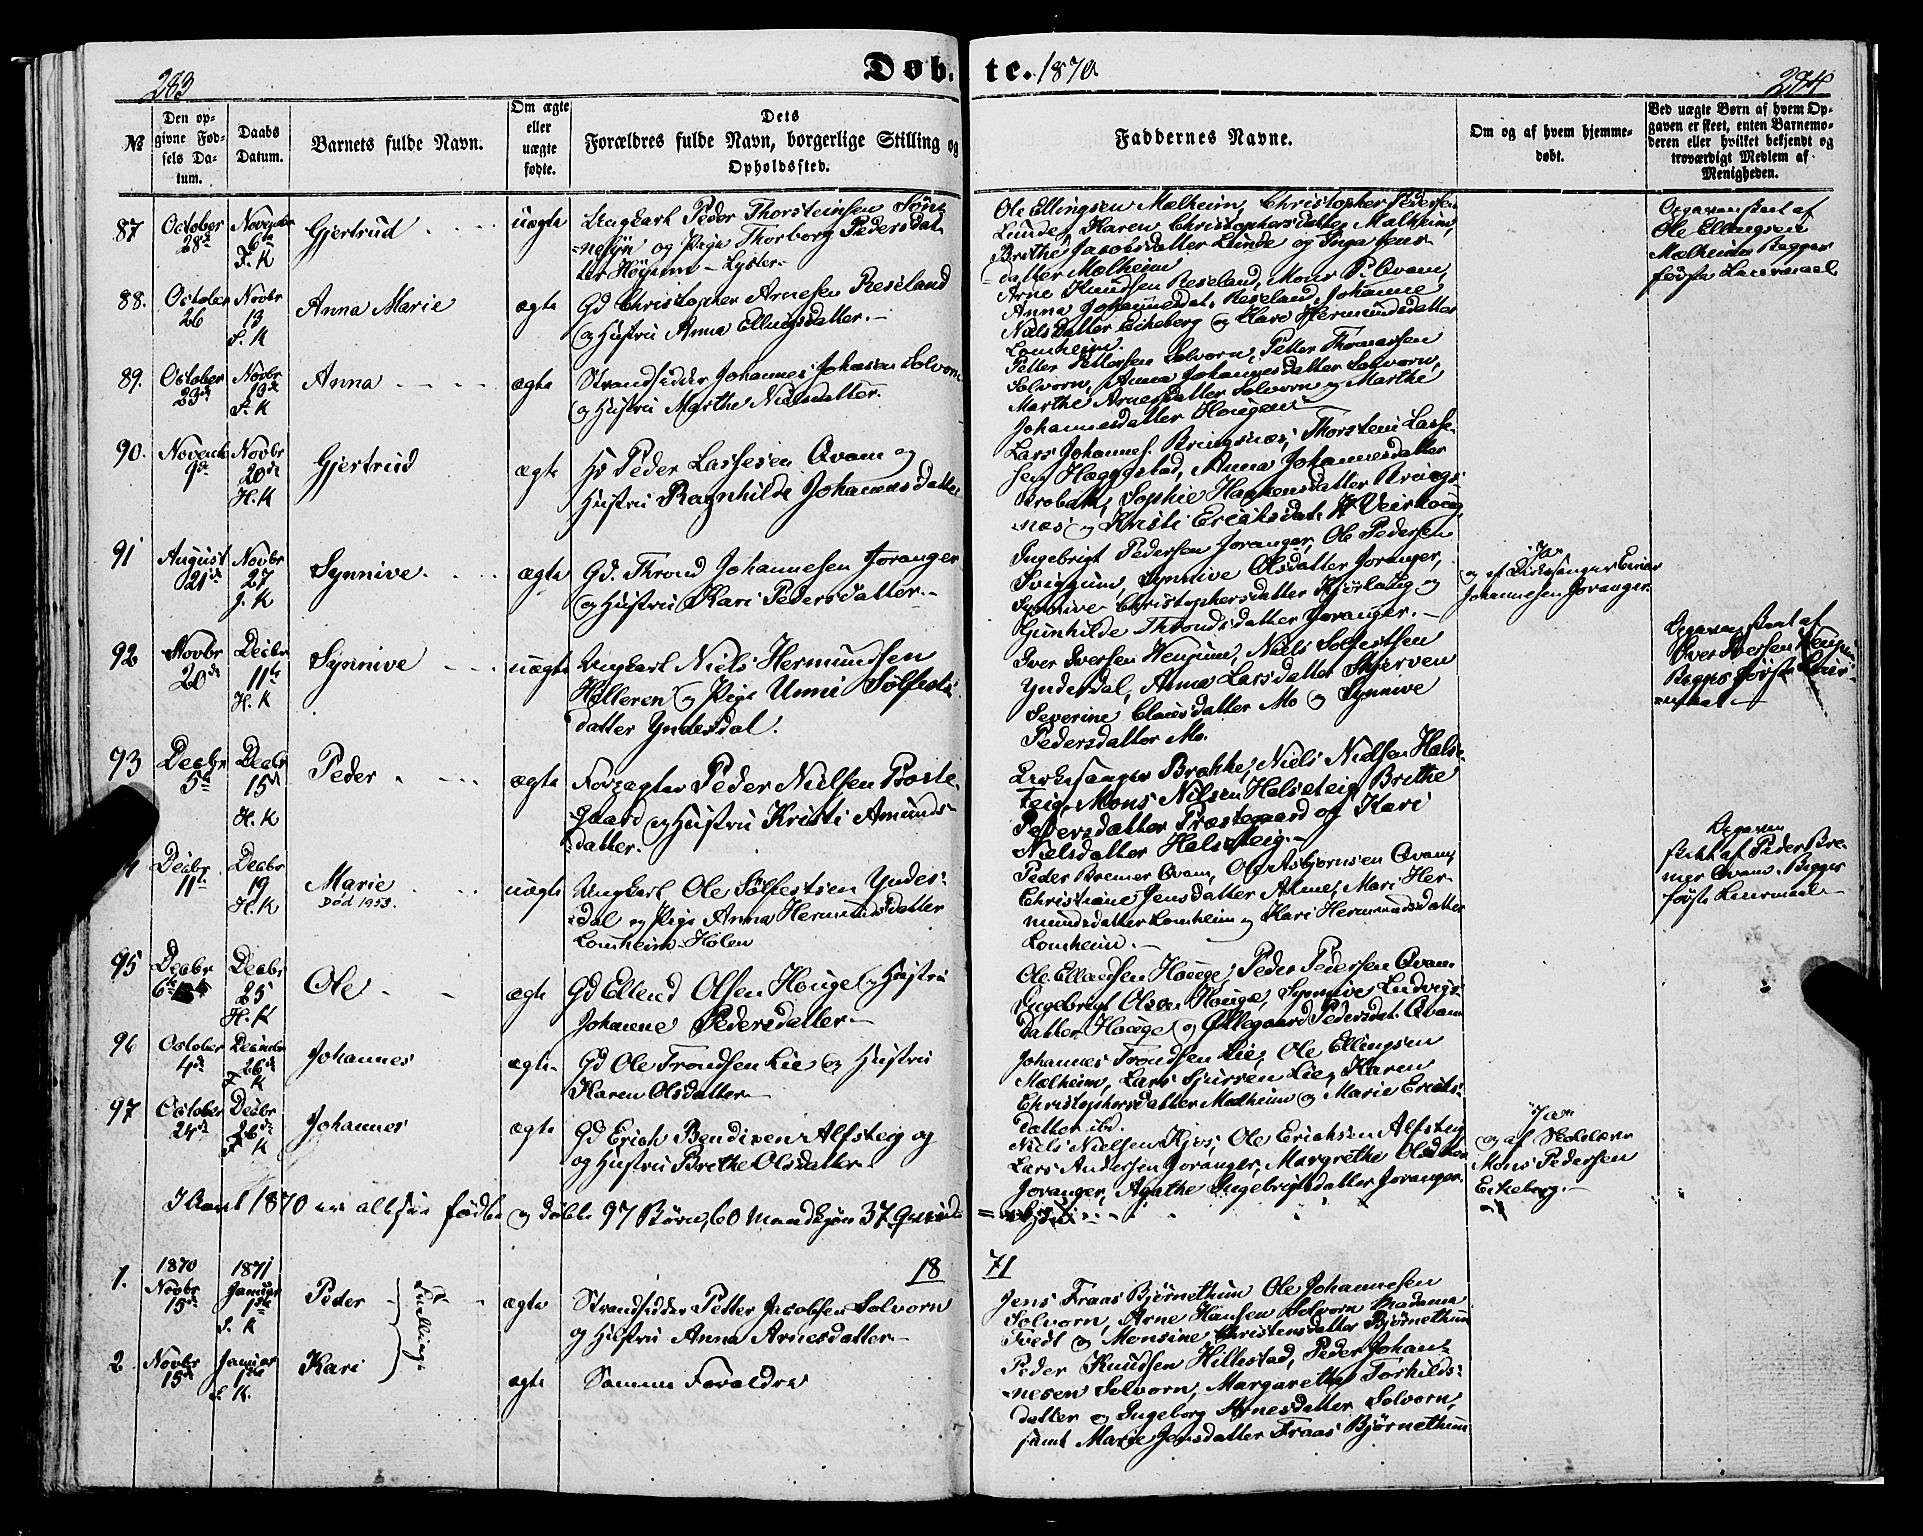 283
Døb-
te. 1870
284
№
Den op-
givne Fød-
sels Da-
tum.
Daabs
Datum.
Barnets fulde Navn.
Om ægte
eller
uægte
fødte.
Dets
Forældres fulde Navn, borgerlige Stilling og
Opholdssted.
Faddernes Navne.
Om og af hvem hjemme-
døbt.
Ved uægte Børn af hvem Op-
gaven er skeet, enten Barnemo-
deren eller hvilket bekjendt og
troværdigt Medlem af
Menigheden.
87
October
28de
November
6te
Gjertrud
uægte
Ungkarl Peder Thorsteinsen
og Pige Thorborg Pedersdat-
ter Høyum - Lyster
Ole Ellingsen Mælheim, Christopher Pedersen
Lunde, Karen Christophersdatter Malheim,
Brithe Jacobsdatter Lunde og Inga Jens-
datter Mælheim
Opgaven skeet af
Ole Ellingsen
Mælheim. Begges
første Leiermaal
88.
October
26
Novbr
13
S. K
Anna Marie
ægte
Gd Christopher Arnesen Reseland
og Hustru Anna Ellingsdatter.
Arne Knudsen Reseland, Mons P. Qvam,
Anna Johannesdat. Reseland, Johanne
Nielsdatter Eikeberg og Kari Hermundsdatter
Lomheim.
89.
October
23de
Novbr
13de
S. K
Anna
ægte
Strandsidder Johannes Johnsen Solvorn
og Hustru Marthe Nielsdatter.
Petter Pettersen Solvorn, Petter Thomassen
Solvorn, Anna Johannesdatter Solvorn,
Marthe Arnesdatter Solvorn og Marthe
Johannesdatter Hougen
90.
Novemb
9de
Novbr
20de
H. K
Gjertrud
ægte
Hs Peder Lassesen Qvam og
Hustru Ragnhilde Johannesdatter
Lars Johannes. Bringsnæs, Thorstein Lasse-
sen Hæggestad, Anna Johannesdatter
Sophie Haakensdatter Brings-
næs og Kristi Ericksdat.
91
August
21de
Novbr
27
J. K
Synnive.
ægte
Gd. Thrond Johannesen Joranger
og Hustru Kari Pedersdatter.
Ingebrigt Pedersen Joranger, Ole Pedersen
Sviggum, Synnive Olsdatter Joranger,
Synnive Christophersdatter og
Gunhilde Throndsdatter Joranger.
Ja
og af Kirkesanger
Johannesen Joranger.
92
Novbr
20de
Decbr
11te
H. K
Synnive
uægte
Ungkarl Niels Hermundsen
Hilleren og Pige Unni Sølfests-
datter Yndesdal.
Iver Iversen Heugum, Niels Solfestsen
Yndesdal, Anna Larsdatter Skjerven
Severine Clausdatter Mo og Synnive
Pedersdatter Mo.
Opgaven skeet af
Iver Iversen Heugum
Begges første Leier-
maal
93
Decbr
5te
Decbr
15de
H. K
Peder
ægte
Forpagter Peder Nielsen Præste-
gaard og Hustru Kristi Amunds-
datter.
Kirkesanger Brække, Niels Nielsen Halse-
teig, Mons Nilsen Halseteig, Brithe
Pedersdatter Præstegaard og Kari
Nielsdatter Halseteig.
Decbr
11te
Decbr
19
H. K
Marie
Død 1953.
uægte
Ungkarl Ole Sølfestsen Yndes-
dal og Pige Anna Hermundsdatter
Lomheim-Holen
Peder Bremer Qvam, Ole Asbjørnsen Qvam,
Christiane Jensdatter Mari Her-
mundsdatter Lomheim og Kari Hermundsdatter
Lomheim.
Opgaven
skeet af Peder Bre-
mer Qvam. Begges
første Leiermaal
95
Decbr
6te
Decbr
25
H. K
Ole
ægte
Gd Ellend Olsen Houge og Hustru
Johanne Pedersdatter
Ole Ellendsen Houge, Peder Pedersen Qvam
Ingebrigt Olsen Houge, Synnive Ludvigs-
datter Houge og Ollegaard Pedersdat. Qvam
96
October
4de
Decembr
26de
K
Johannes
ægte
Gd Ole Trondsen Lie og Hustru
Karen Olsdatter
Johannes Trondsen Lie, Ole Ellingsen
Mælheim, Lars Sjursen Lie, Karen
Christophersdatter Mælheim og Marie Ericks-
datter ibd.
97
October
24de
Decbr
26de
K
Johannes
ægte
Gd Erich Bendixen Alfsteig og
og Hustru Brithe Olsdatter
Niels Nielsen Kjos, Ole Erichsen Alfsteig
Lars Andersen Joranger, Margrethe Olsdatter
Joranger, Agathe Ingebrigtsdatter Joranger.
Ja
og af Skolelærer
Mons Pedersen
Eikeberg.
I Aaret 1870 ere altsaa fødte og døbte 97 Børn, 60 Mandkjøn 37 Qvinde-
kjøn
18
71
1.
1870
Novbr
15de
1871
Januar
1ste
S. K
Peder
Tvillinger
ægte
Strandsidder Petter Jacobsen Solvorn
og Hustru Anna Arnesdatter
Jens Fraas Bjørnethun Ole Johannesen
Solvorn, Arne Hansen Solvorn Madama
Tvedt og Monsine Christensdatter Bjørnethun
2
Novbr
15de
Januar
1ste
S. K.
Kari
ægte
Samme Forældre
Peder Knudsen Hillestad, Peder Johan-
nesen Solvorn, Margarethe Torkilds-
datter og Ingeborg Arnesdatter Solvorn,
samt Marie Jensdatter Fraas Bjørnethun